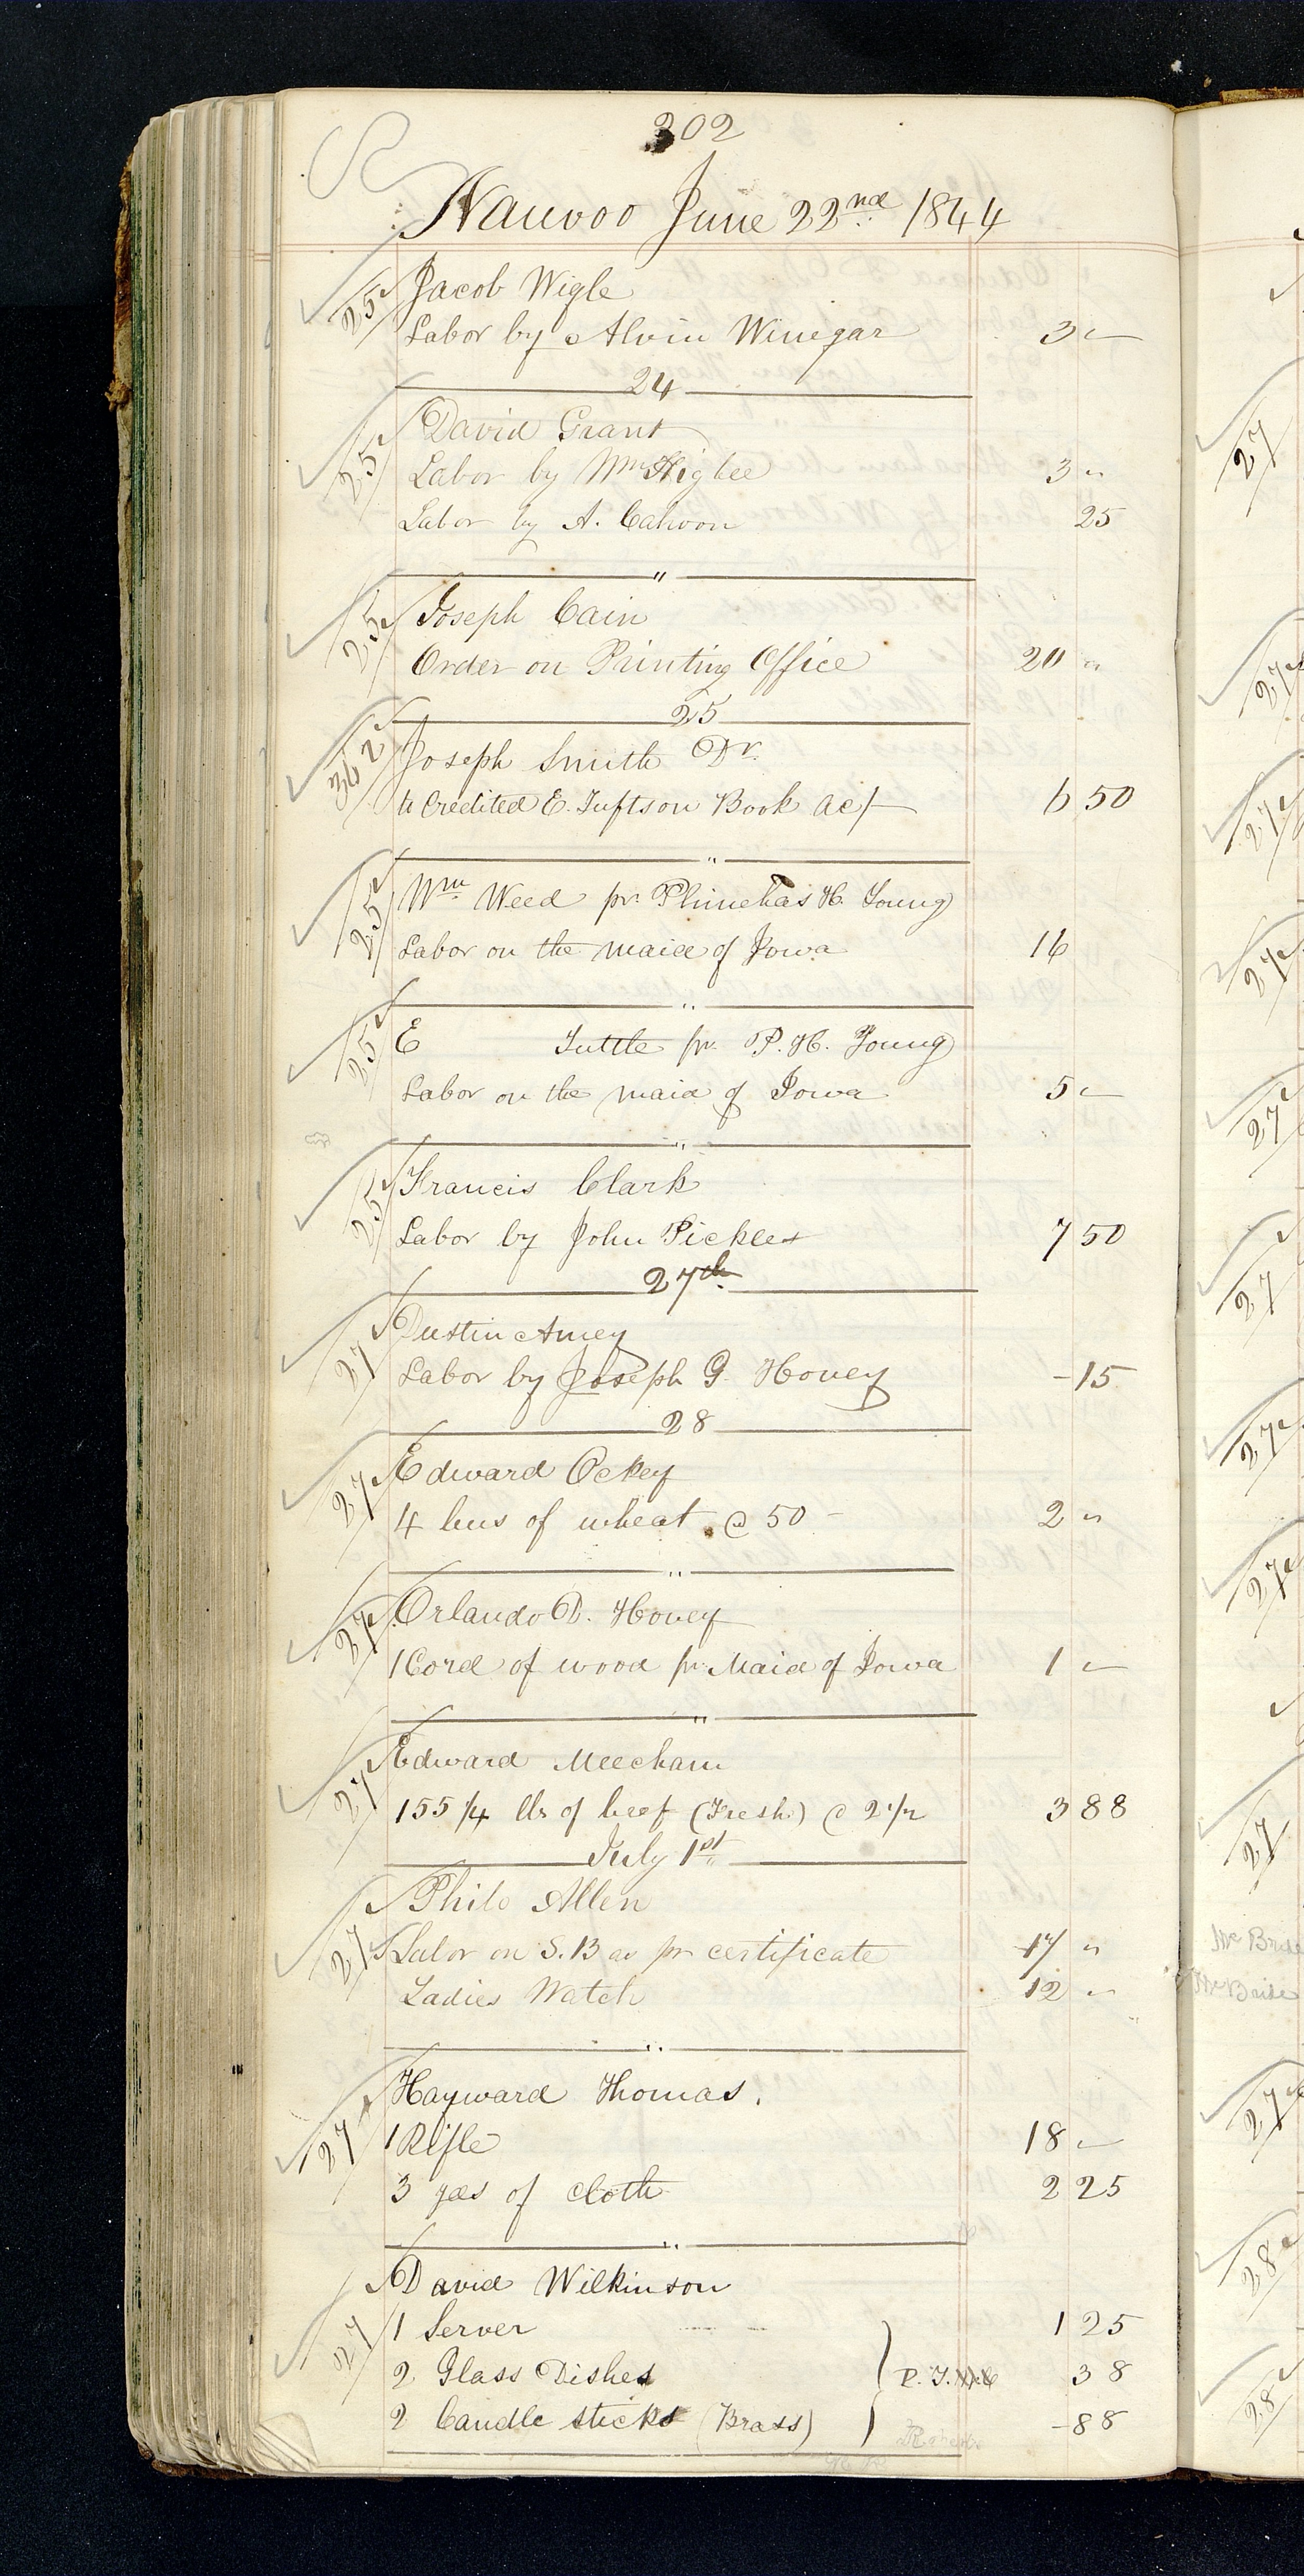 302
Nauvoo June 22nd 1844
25 Jacob Wigle
Labor by Alvin Winegar 3 "
24
25 David Grant
Labor by Wm Higbee 3 "
Labor by A. Cahoon 25
"
25 Joseph Cain
Order on Printing Office 20 "
25
362 Joseph Smith Dr.
to Credited E. Tufts on Book ac/ 6 50
"
25 Wm Weed pr. Phinehas H. Young
Labor on the maid of Iowa 16
"
25 E Tuttle pr. P. H. Young
Labor on the maid of Iowa 5 "
"
25 Francis Clark
Labor by John Pickles 7 50
27th
27 Dustin Amey
Labor by Joseph G. Hovey -15
28
27 Edward Ockey
4 bus of wheat @ 50 - 2 "
"
27 Orlando D. Hovey
1 Cord of wood pr. Maid of Iowa 1 "
"
27 Edward Meecham
155 1/4 lbs of beef (Fresh) @ 2 1/2 3 88
July 1st
27 Philo Allen
Labor on S. B as pr certificate 17 "
Ladies Watch 12 "
"
27 Hayward Thomas.
1 Rifle 18 "
3 yds of cloth 2 25
"
27 David Wilkinson
1 Server 1 25
2 Glass Dishes 38
2 Candle sticks (Brass) -88
27
27
27
27
27
27
27
27
27
McBride
McBride
27
28
28